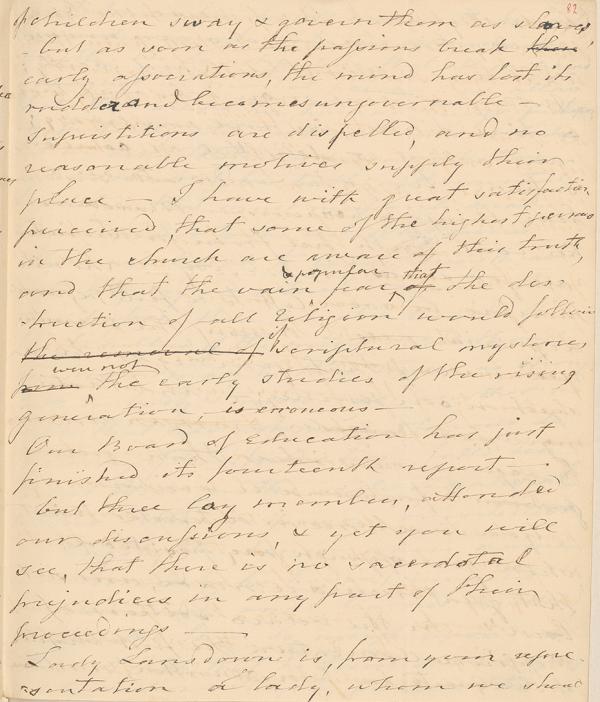 82
of children sway & govern them as slaves
- but as soon as the passions break these
early associations, the mind has lost its
rudder and becomes ungovernable —
Supirstitions are dispelled, and no
reasonable motives supply their
place — I have with great satisfaction
perceived, that some of the highest persons
in the church are aware of this truth,
& popular that
and that the vain fear, of the des-
-truction of all religion would follow
the removal of if scriptural mysteries
were not
from the early studies of the rising
generation, is erroneous —
Our Board of Education has just
finished its fourteenth report —
but three lay members, attended
our discussions, & yet you will
see, that there is no sacerdotal
prejudices in any part of their
proceedings —
Lady Lansdown is, from your repre-
-sentation a lady, whom we should